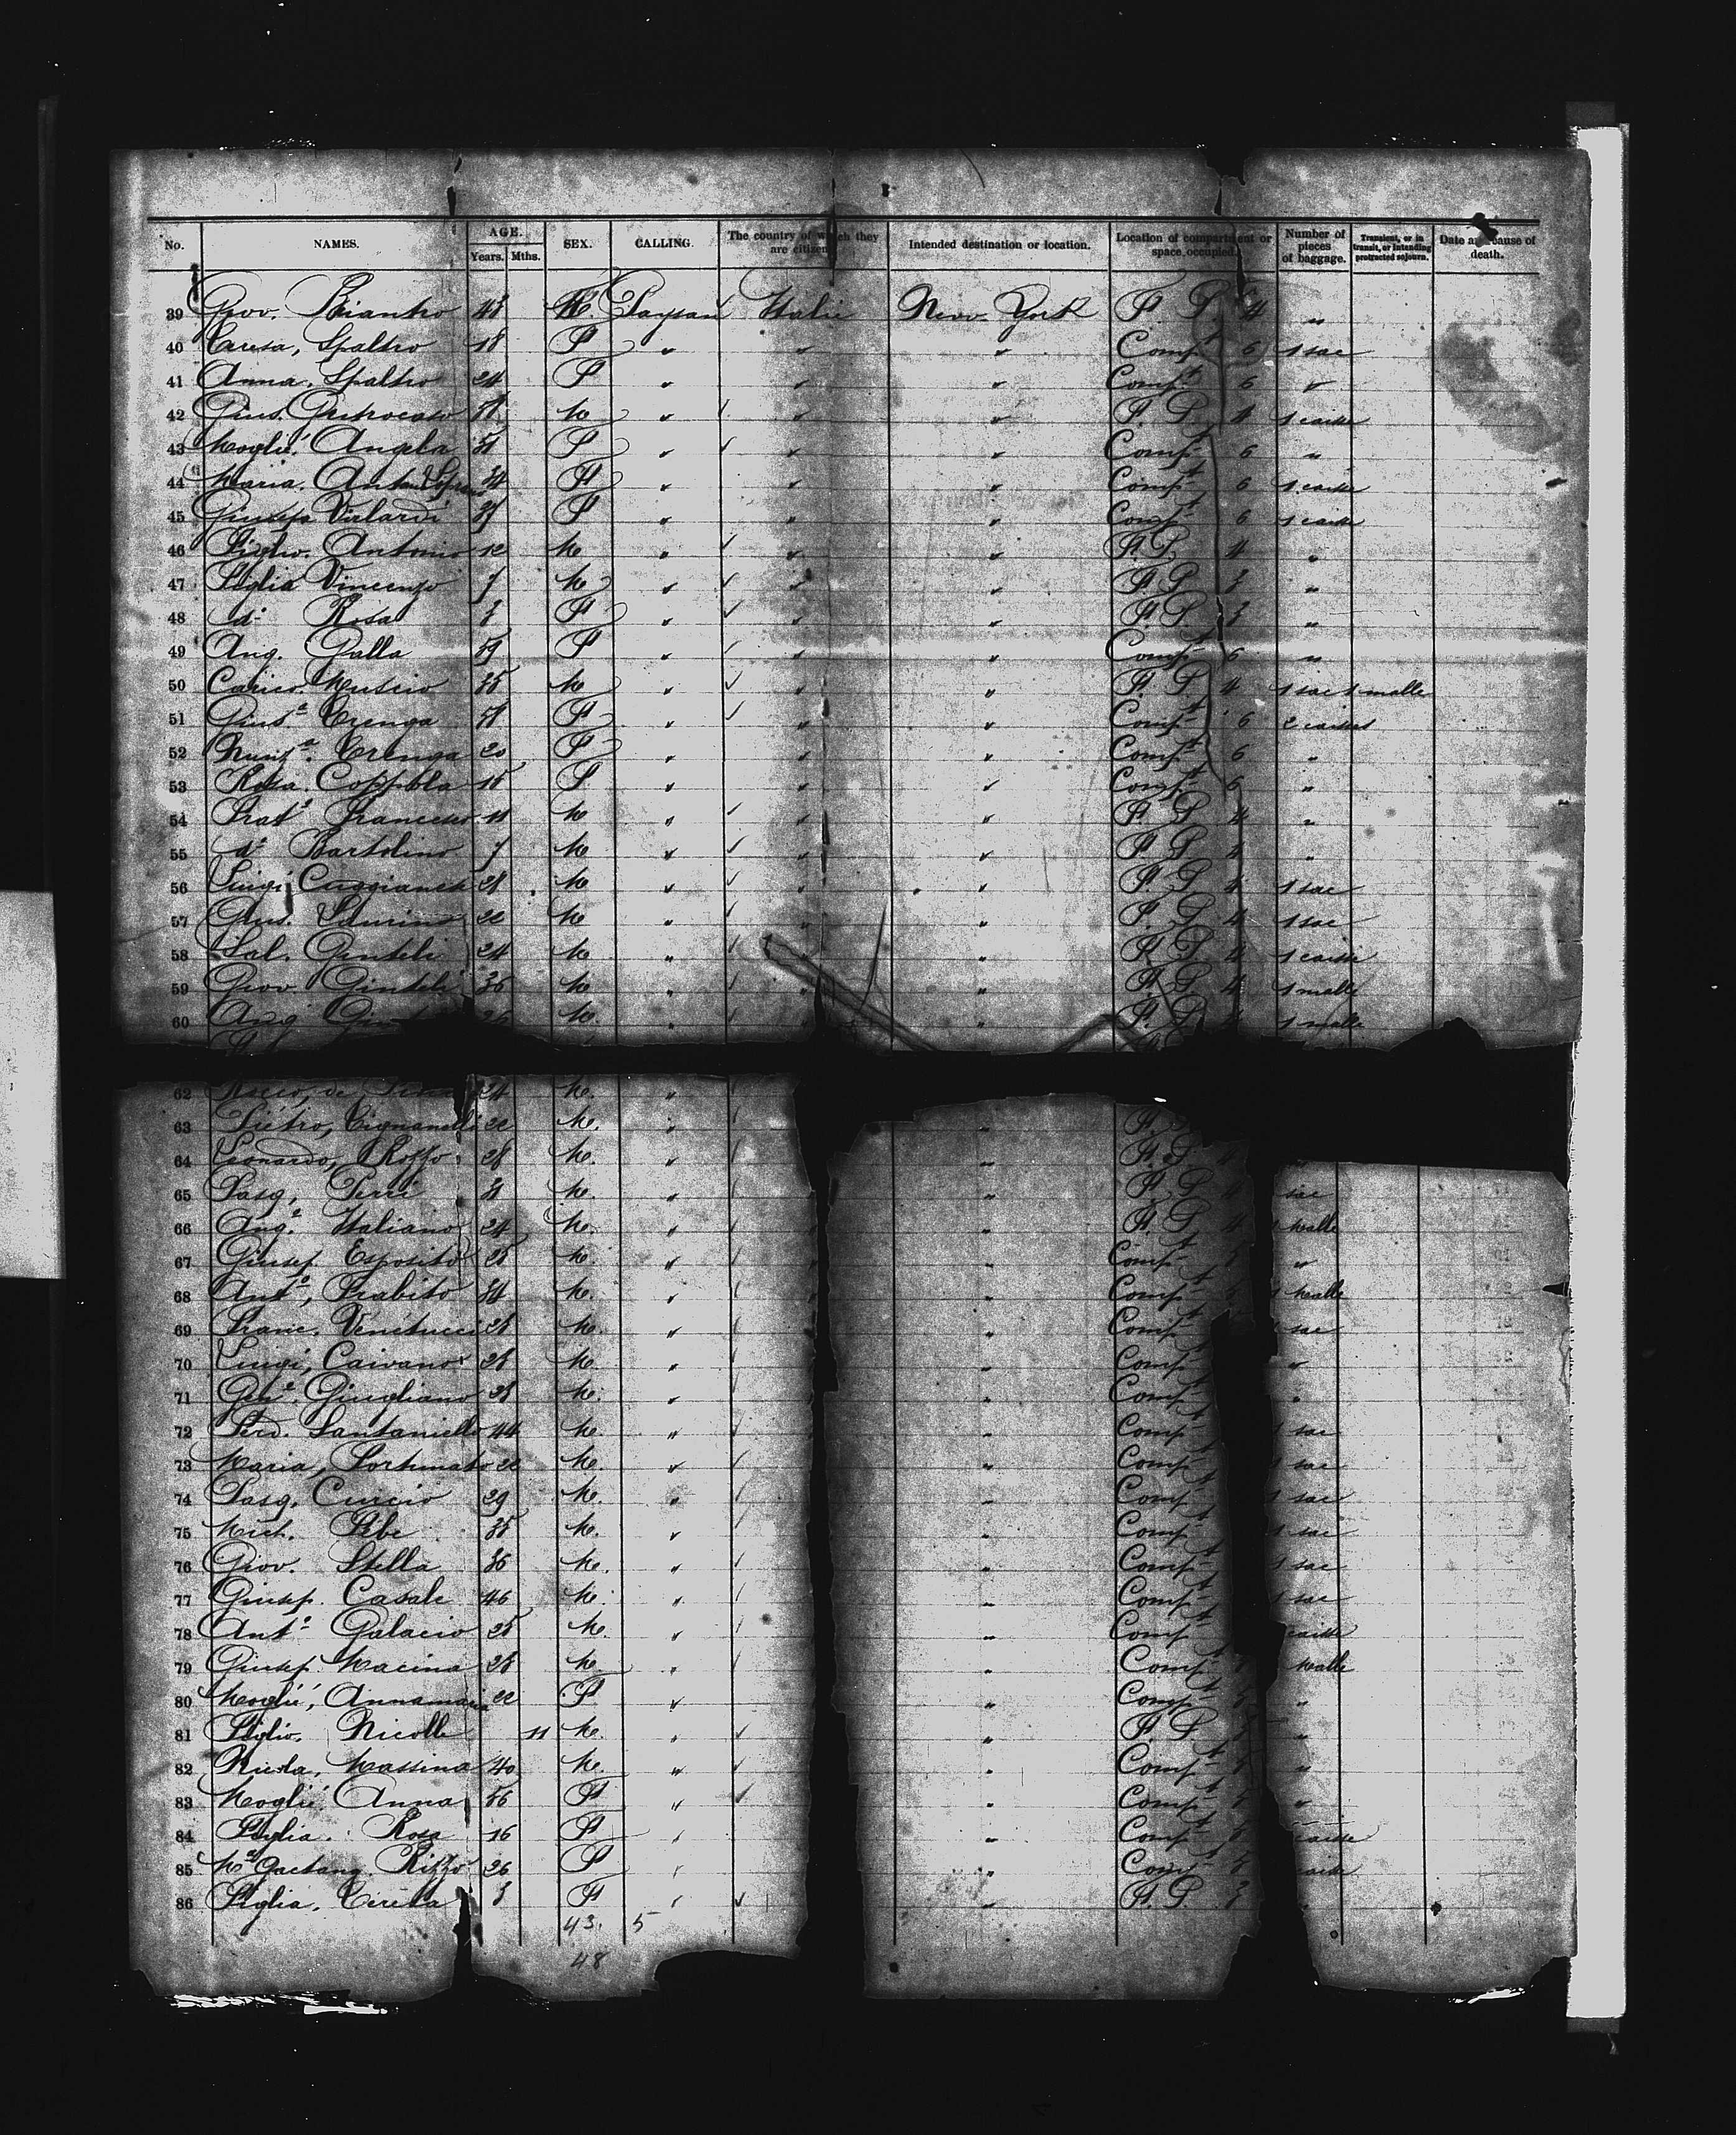 No. NAMES. AGE. Years. Mths. SEX. CALLING. The country of which they are citizens Intended destination or location. Location of compartment or space occupied. Number of pieces of baggage. Transient, or in transit, or intending protracted sojourn. Date and cause of death.
39 Giov. 43 M. Paysan Italie New York F P 4 "
40 Teresa, Spaltro 18 F " " " Compt 6 1 sac
41 Anna. Spaltro 24 F " " " Compt 6 "
42 Gius. M " " " F. P 4 1 caisse
43 Moglié. Angela F " " " Compt 6 "
44 Maria. 34 F " " " Compt 6 1 caisse
45 Giusepa Vilardi F " " " Compt 6 1 caisse
46 Figlio. Antonio 12 M " " " F. P. 4 "
47 Figlia Vincenzo 7 M " " " F. P "
48 do Rosa 3 F " " " F. P 3 "
49 Ang. Galla 59 F " " " Compt 6 "
50 Muscio 35 M " " " F. P 4 1 sac 1 malle
51 Giusa Trenga F " " " Compt 6 2 caisses
52 Nunza. Trenga 20 F " " " Compt 6 "
53 Rosa. Coppola 18 F " " " Compt 6 "
54 Frato Francesco 11 M " " " F P 4 "
55 do Bartolino 7 M " " " F P "
56 Luigi 28 M " " " F P 4 1 sac
57 Gius. 22 M " " " F. P 4 1 sac
58 Sal. Gentili 24 M " " " F P 4 1 caisse
59 Giov. Gentili 36 M " " " F P 4 1 malle
60 Ang M. " " " F. P 4 1 malle
62 Rocco, de 24 M. "
63 Piétro, Cignanelli 22 M. " " F P
64 Leonardo, Roffo 28 M. " " F. P
65 Pasq, Perri 31 M. " " F. P sac
66 Ango. Italiano 24 M. " " F. P 4 1 Malle
67 Giusep Esposito 25 M. " " Compt "
68 Anto, Frabito 34 M. " " Compt 1 Malle
69 Franc. Venetucci 28 M. " " Compt sac
70 Luigi, Caivano 28 M. " " Compt "
71 Geno. Giugliano 28 M. " " Compt "
72 Ferd. Santaniello 44 M. " " Compt 1 sac
73 Maria, Fortunato 22 M. " " Compt 1 sac
74 Pasq, Curcio 29 M. " " Compt 1 sac
75 Mich. 35 M. " " Compt 1 sac
76 Giov. Stella 36 M. " " Compt 1 sac
77 Giusep. Casale 46 M. " " Compt 1 sac
78 Anto Galacio 25 M. " " Compt caisse
79 Giusep. Macina 28 M " " Compt Malle
80 Moglié, Annamaria 22 F " " Compt "
81 Figlio. Nicolle 11 M. " " F. P "
82 Nicola, Massina 40 M. " " Compt "
83 Moglié. Anna 36 F " " Compt "
84 Figlia. Rosa 16 F " " Compt caisse
85 Ma Gaetana Rizzo 26 F " " Compt caisse
86 Figlia. Teresa 3 F " " F. P. 3
43. 5
48